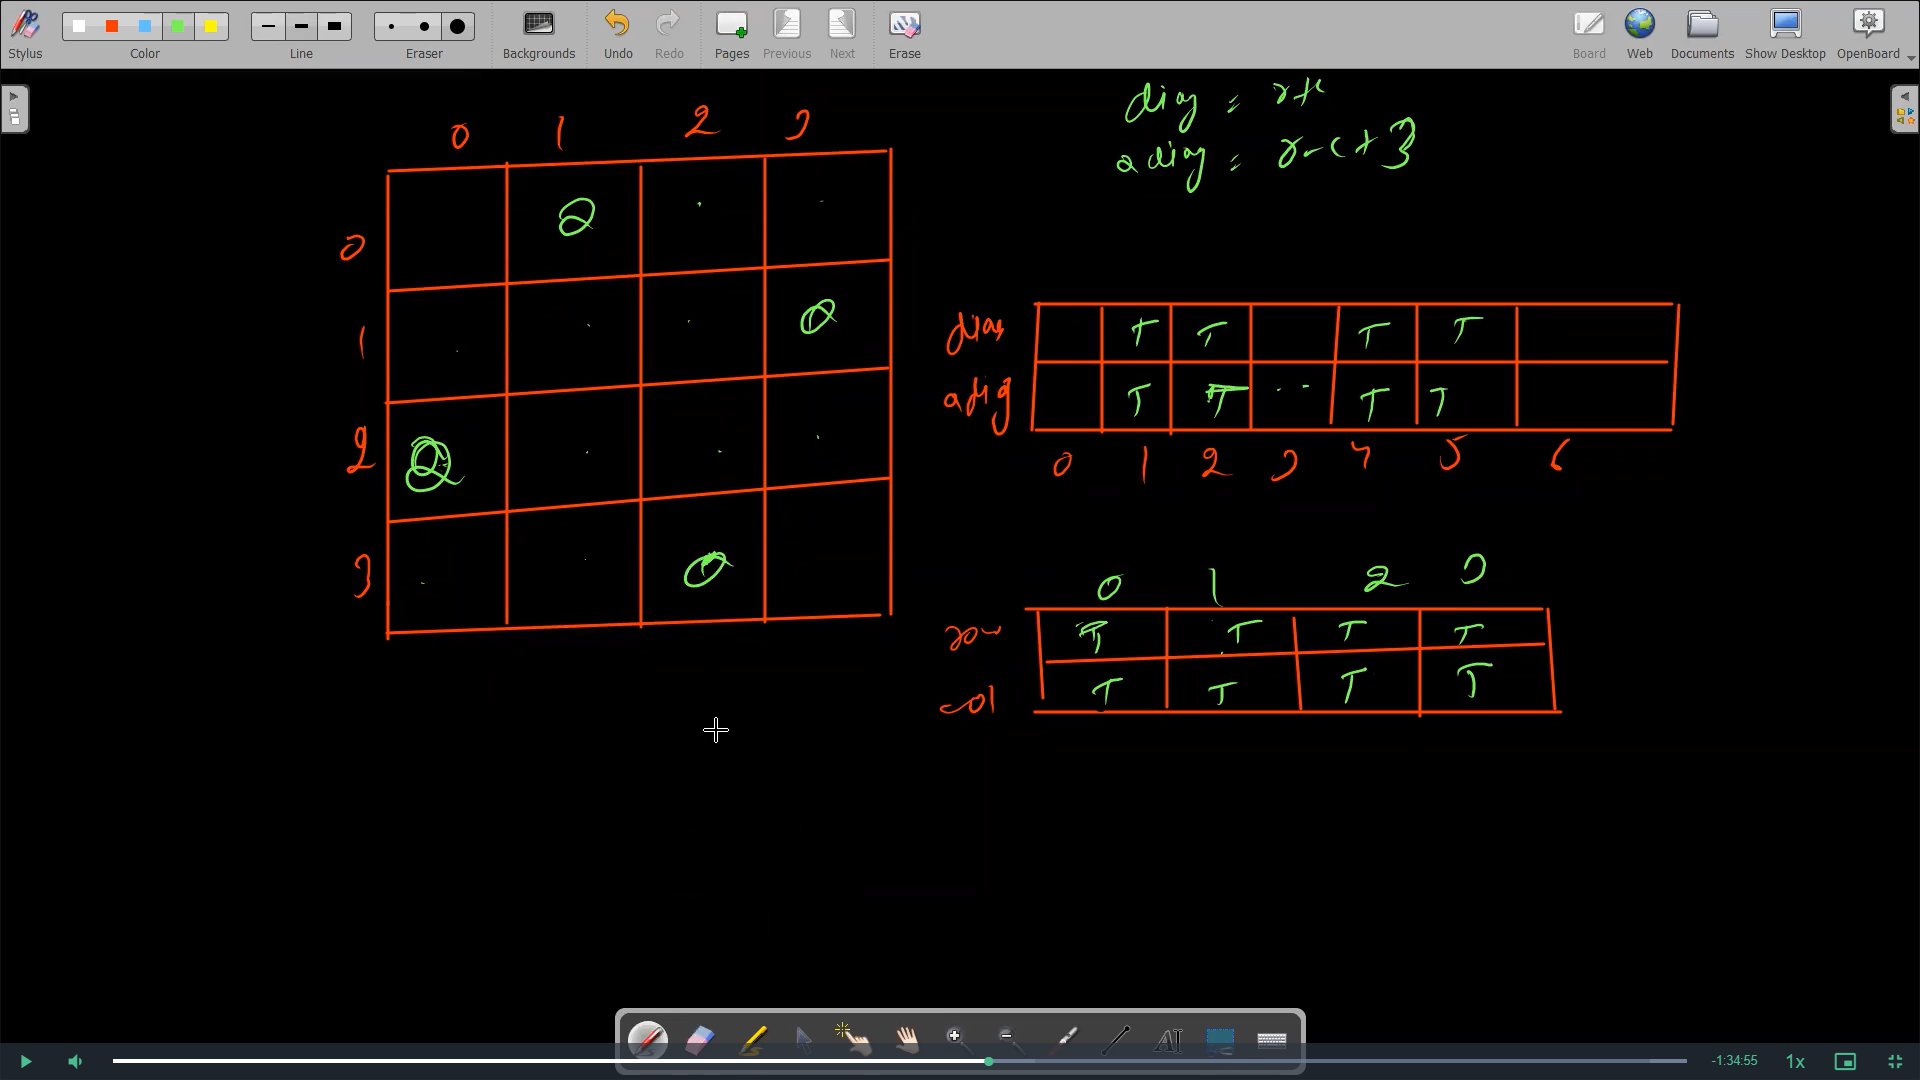 Stylus Color Line Eraser Backgrounds Undo Redo Pages Previous Next Erase Board Web Documents Show Desktop OpenBoard
diag = r+c
adiag = r-c+3
0 1 2 3
0 Q
1 Q
2 Q
3 Q
diag T T T T
adig T T T T
0 1 2 3 4 5 6
0 1 2 3
row T T T T
col T T T T
-1:34:55 1x